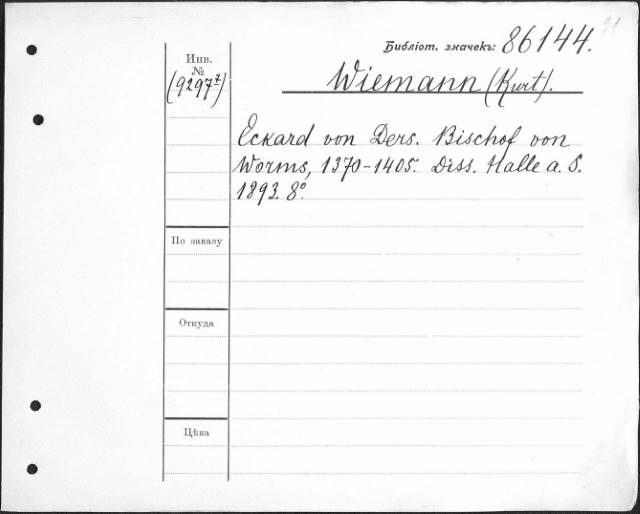 91
Библіот. значекъ: 86144.
Инв.
№
(9297⁷)
Wiemann (Kurt).
Eckard von Ders. Bischof von
Worms, 1370-1405. Diss. Halle a. S.
1893. 8°.
По заказу
Откуда
Цѣна